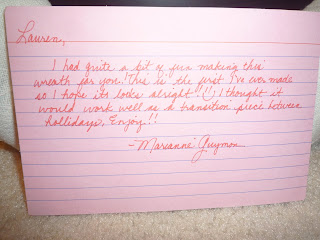 Lauren,
I had quite a bit of fun making this
wreath for you! This is the first I've ever made
so I hope its looks alright!! I thought it
would work well as a transition piece between
hollidays, Enjoy!!
-Marianne Guymon